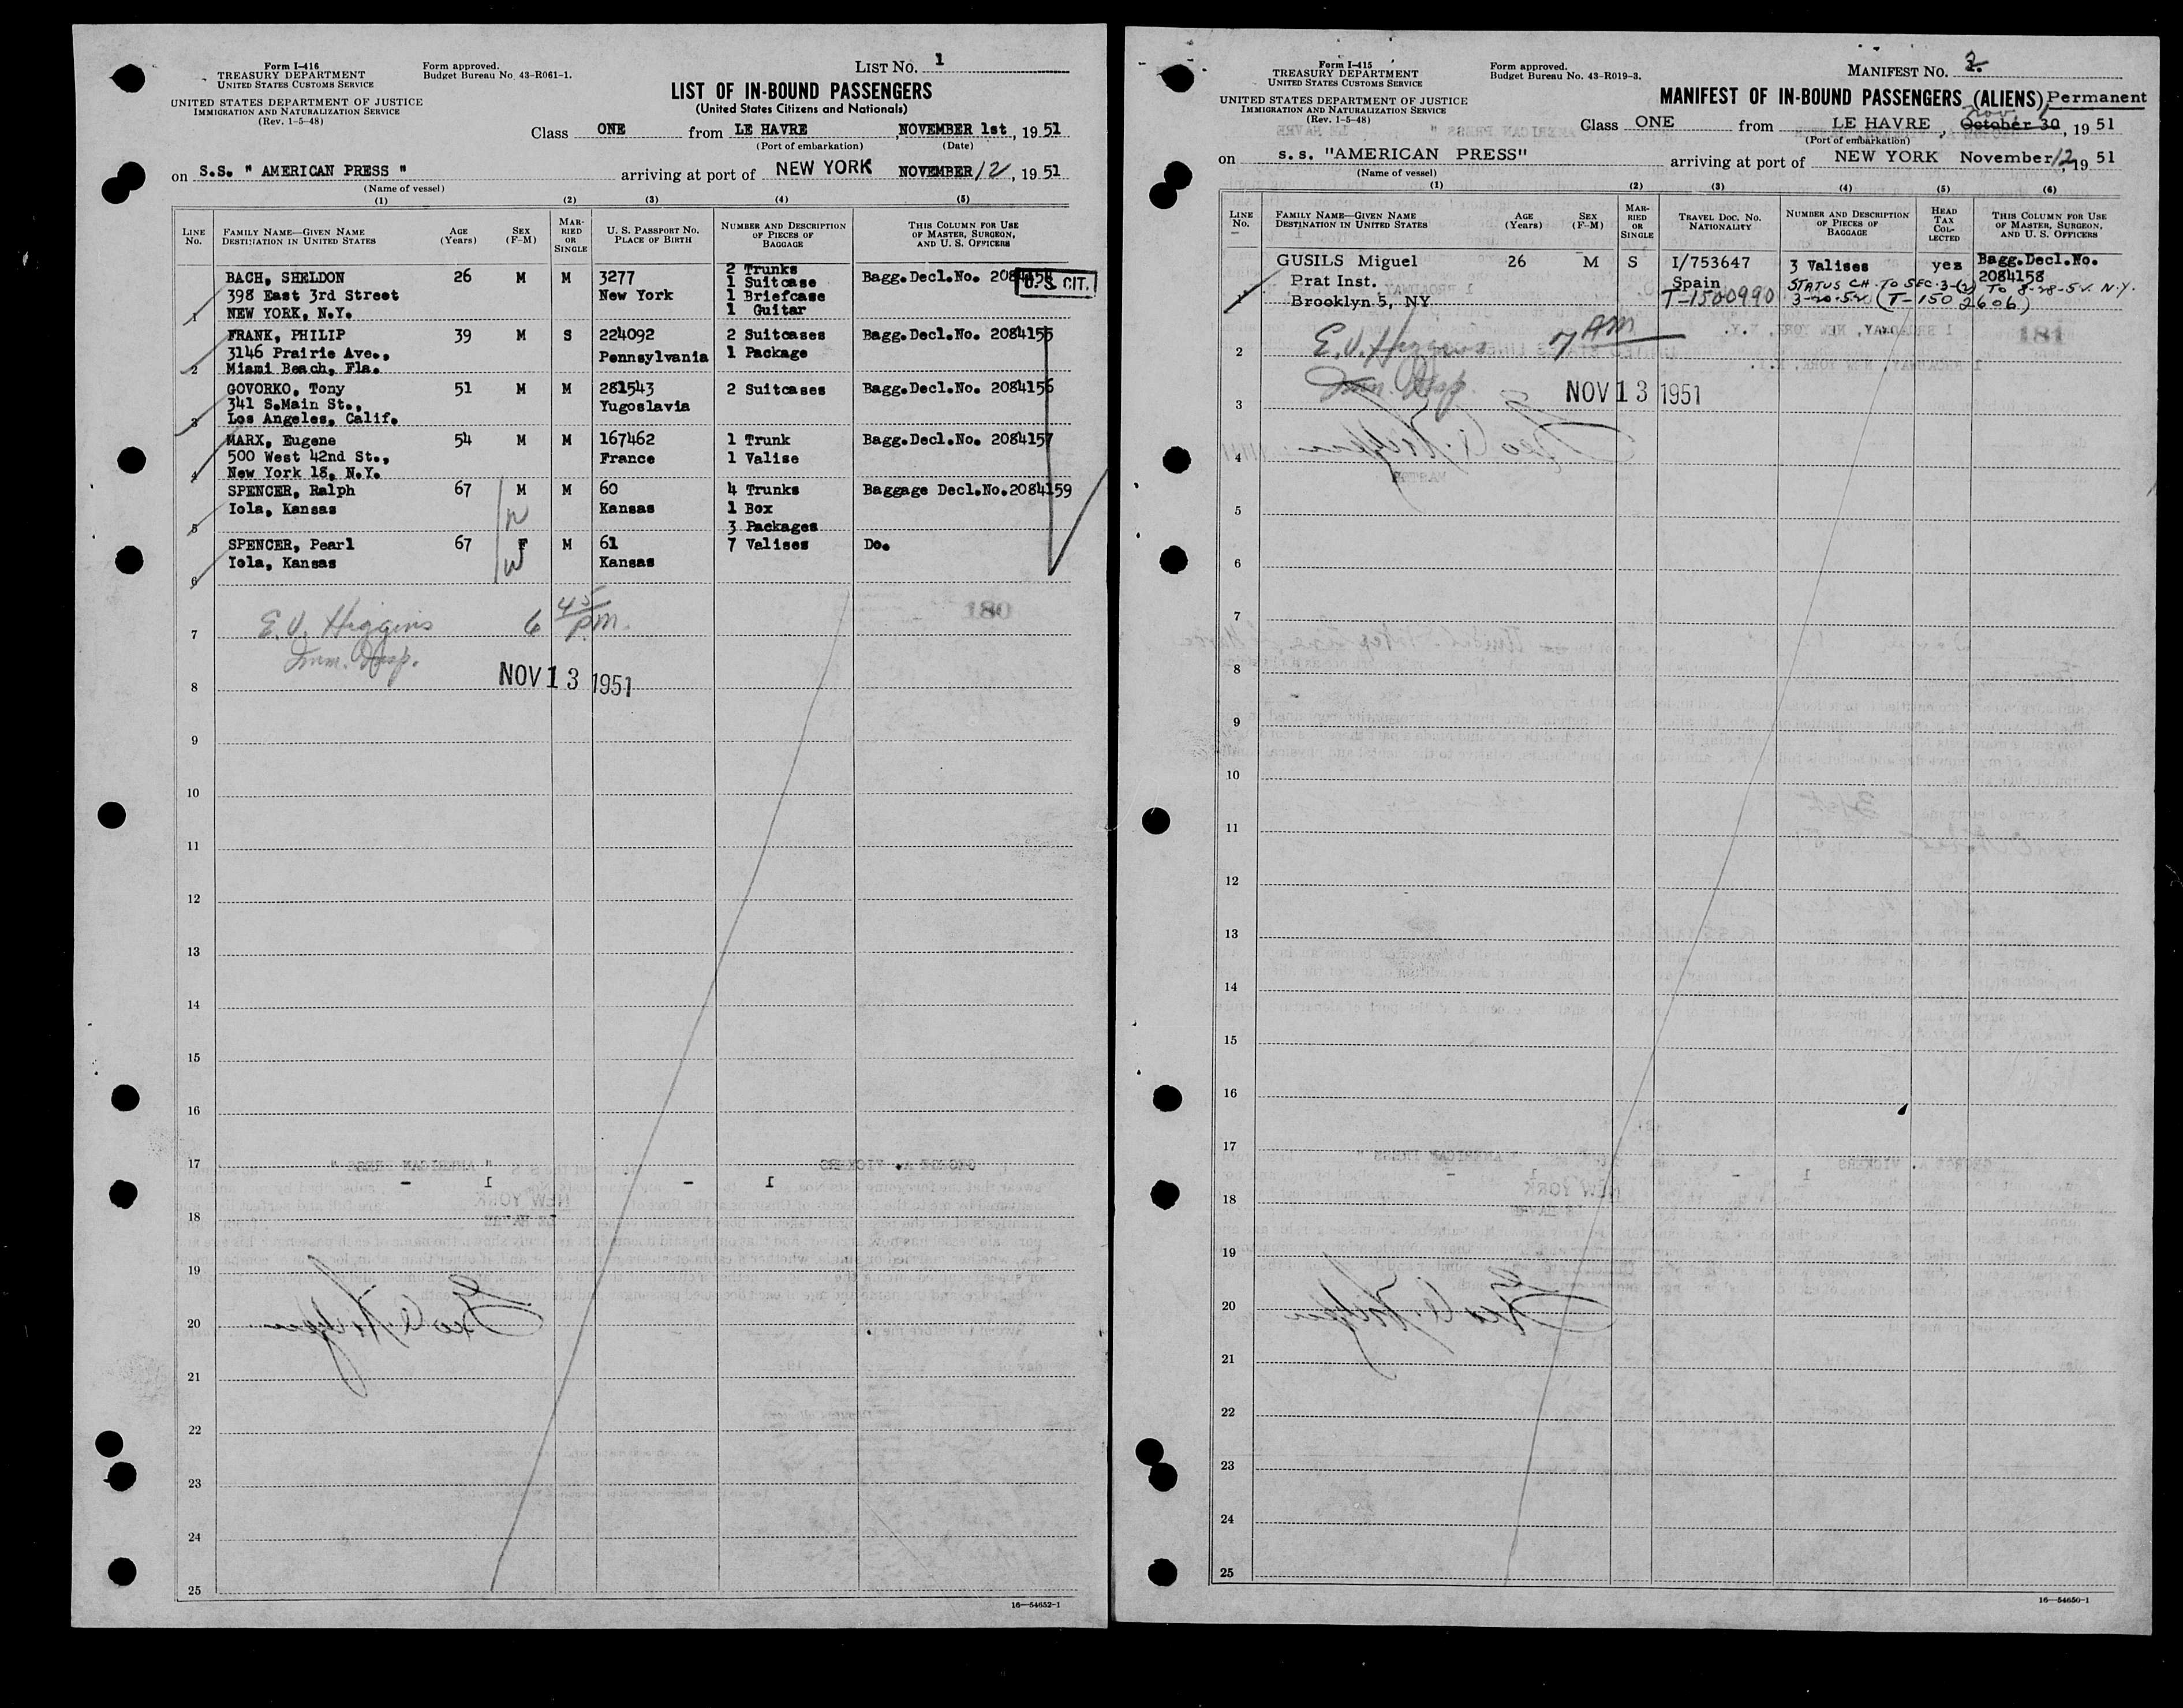 Form I-416
TREASURY DEPARTMENT
UNITED STATES CUSTOMS SERVICE
UNITED STATES DEPARTMENT OF JUSTICE
IMMIGRATION AND NATURALIZATION SERVICE
(Rev. 1-5-48)
Form approved.
Budget Bureau No. 43-R061-1.
LIST No. 1
LIST OF IN-BOUND PASSENGERS
(United States Citizens and Nationals)
Class ONE from LE HAVRE, NOVEMBER 1st, 1951
(Port of embarkation) (Date)
on S.S. " AMERICAN PRESS " arriving at port of NEW YORK NOVEMBER 12, 1951
(Name of vessel)
(1) (2) (3) (4) (5)
LINE No. FAMILY NAME—GIVEN NAME DESTINATION IN UNITED STATES AGE (Years) SEX (F-M) MARRIED OR SINGLE U. S. PASSPORT No. PLACE OF BIRTH NUMBER AND DESCRIPTION OF PIECES OF BAGGAGE THIS COLUMN FOR USE OF MASTER, SURGEON, AND U. S. OFFICERS
BACH, SHELDON 26 M M 3277 2 Trunks Bagg.Decl.No.
U.S. CIT.
1 Suitcase
398 East 3rd Street New York 1 Briefcase
1 NEW YORK, N.Y. 1 Guitar
FRANK, PHILIP 39 M S 224092 2 Suitcases Bagg.Decl.No. 2084155
3146 Prairie Ave., Pennsylvania 1 Package
2 Miami Beach, Fla.
GOVORKO, Tony 51 M M 281543 2 Suitcases Bagg.Decl.No. 2084156
341 S.Main St., Yugoslavia
3 Los Angeles, Calif.
MARX, Eugene 54 M M 167462 1 Trunk Bagg.Decl.No. 2084157
500 West 42nd St., France 1 Valise
4 New York 18, N.Y.
SPENCER, Ralph 67 M M 60 4 Trunks Baggage Decl.No.2084159
Iola, Kansas Kansas 1 Box
5 3 Packages
SPENCER, Pearl 67 F M 61 7 Valises Do.
Iola, Kansas W Kansas
6
E. V. Higgins 6 45 P.M.
7
Imm. Insp.
8 NOV 13 1951
9
10
11
12
13
14
15
16
17
18
19
20
21
22
23
24
25
16—54652-1
Form I-415
TREASURY DEPARTMENT
UNITED STATES CUSTOMS SERVICE
UNITED STATES DEPARTMENT OF JUSTICE
IMMIGRATION AND NATURALIZATION SERVICE
(Rev. 1-5-48)
Form approved.
Budget Bureau No. 43-R019-3.
MANIFEST No.
MANIFEST OF IN-BOUND PASSENGERS (ALIENS) Permanent
Class ONE from LE HAVRE, October 30, 1951
(Port of embarkation)
on s.s. "AMERICAN PRESS" arriving at port of NEW YORK November 12, 1951
(Name of vessel)
(1) (2) (3) (4) (5) (6)
LINE No. FAMILY NAME—GIVEN NAME DESTINATION IN UNITED STATES AGE (Years) SEX (F-M) MARRIED OR SINGLE TRAVEL DOC. NO. NATIONALITY NUMBER AND DESCRIPTION OF PIECES OF BAGGAGE HEAD TAX COLLECTED THIS COLUMN FOR USE OF MASTER, SURGEON, AND U. S. OFFICERS
GUSILS Miguel 26 M S I/753647 3 Valises yes Bagg.Decl.No.
2084158
Prat Inst. Spain STATUS CH. TO SEC. 3-(2) TO 8-28-52 N.Y.
1 Brooklyn 5, NY T-1500990 3-20-52 (T-1502606)
E. V. Higgins 7 AM
2
Imm. Insp.
NOV 13 1951
3
4
5
6
7
8
9
10
11
12
13
14
15
16
17
18
19
20
21
22
23
24
25
16—54650-1